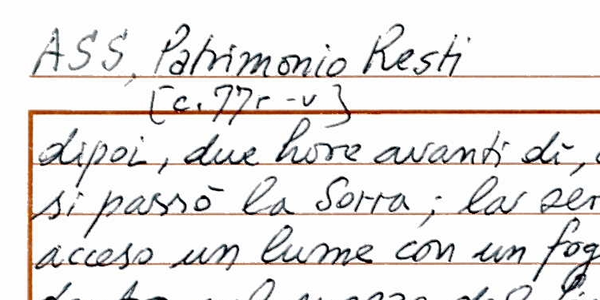 ASS, Patrimonio Resti
[c. 77r-v]
dipoi, due hore avanti dì,
si passò la Sorra; la ser
acceso un lume con un fog